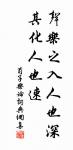 聲樂之入人也深
其化人也速
荀子樂論詞典網書